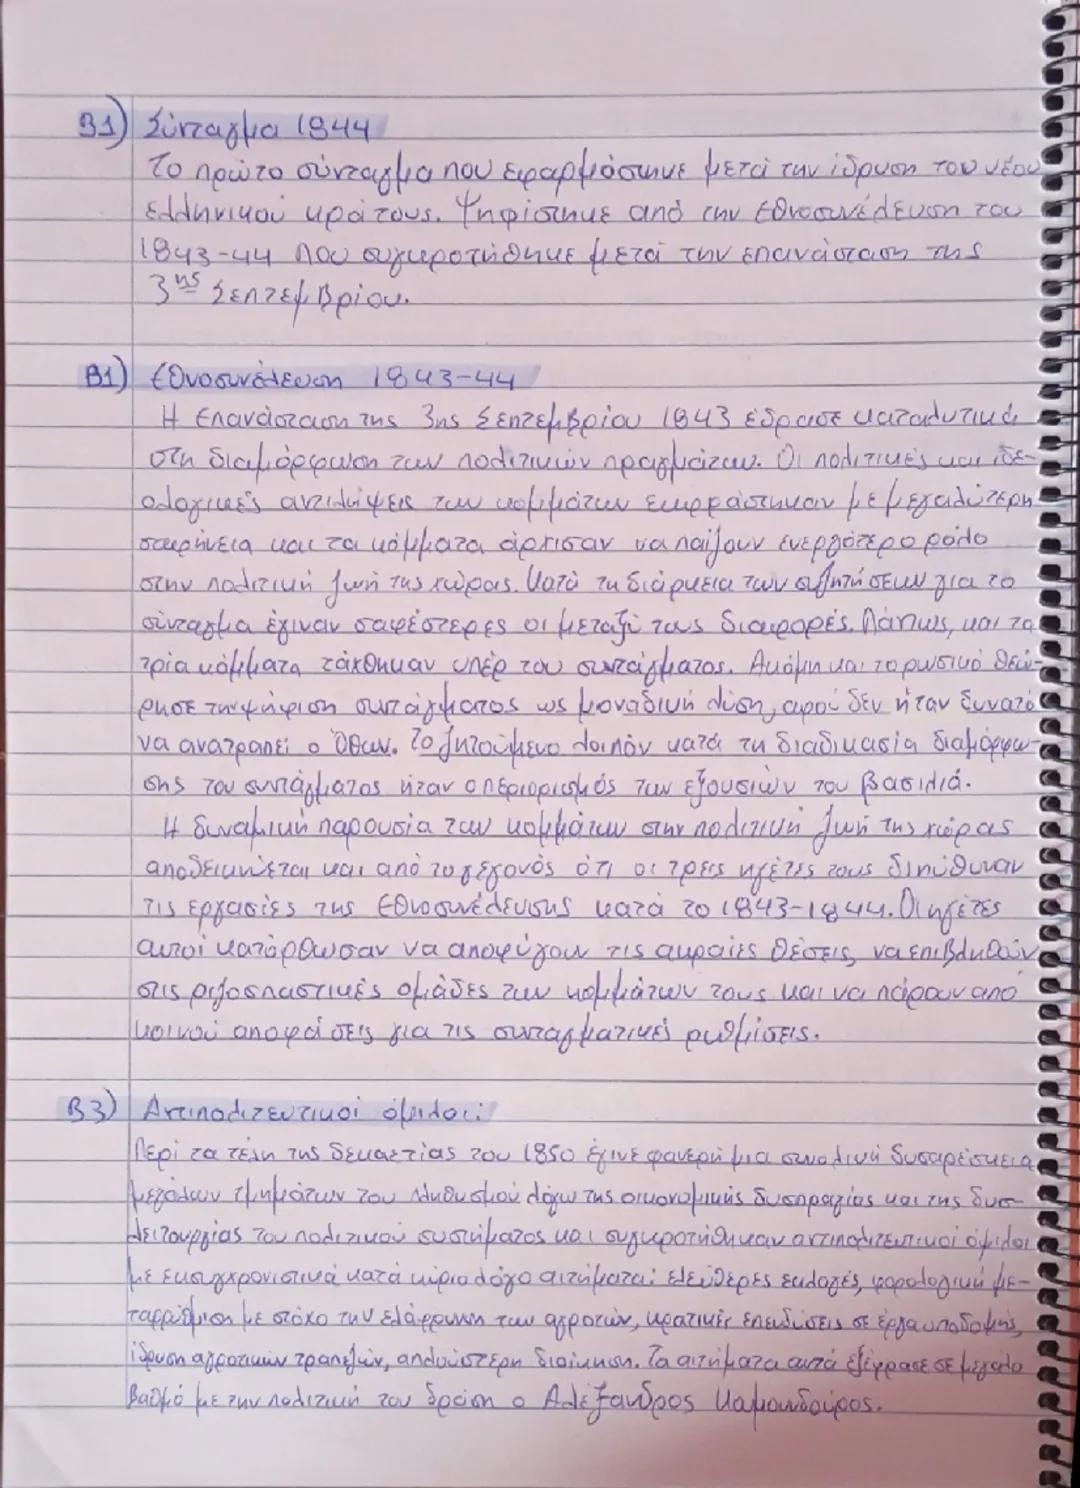 B1) Σύνταγμα 1844
Το πρώτο σύνταγμα που εφαρμόστηκε μετά την ίδρυση του νέου
ελληνικού κράτους. Ψηφίστηκε από την Εθνοσυνέλευση του
1843-44 που συγκροτήθηκε μετά την επανάσταση της
3ης Σεπτεμβρίου.
B1) Εθνοσυνέλευση 1843-44
Η επανάσταση της 3ης Σεπτεμβρίου 1843 έδρασε καταλυτικά
στη διαμόρφωση των πολιτικών πραγμάτων. Οι πολιτικές και ιδε-
ολογικές αντιλήψεις των κομμάτων εκφράστηκαν με μεγαλύτερη
σαφήνεια και τα κόμματα άρχισαν να παίζουν ενεργότερο ρόλο
στην πολιτική ζωή της χώρας. Κατά τη διάρκεια των συζητήσεων για το
σύνταγμα έγιναν σαφέστερες οι μεταξύ τους διαφορές. Πάντως, και τα
τρία κόμματα τάχθηκαν υπέρ του συντάγματος. Ακόμη και το ρωσικό θεώ-
ρησε την ψήφιση συντάγματος ως μοναδική λύση, αφού δεν ήταν δυνατό
να ανατραπεί ο Όθων. Το ζητούμενο λοιπόν κατά τη διαδικασία διαμόρφω-
σης του συντάγματος ήταν ο περιορισμός των εξουσιών του βασιλιά.
Η δυναμική παρουσία των κομμάτων στην πολιτική ζωή της χώρας
αποδεικνύεται και από το γεγονός ότι οι τρεις ηγέτες τους διηύθυναν
τις εργασίες της Εθνοσυνέλευσης κατά το 1843-1844. Οι ηγέτες
αυτοί κατόρθωσαν να αποφύγουν τις ακραίες θέσεις, να επιβληθούν
στις ριζοσπαστικές ομάδες των κομμάτων τους και να πάρουν από
κοινού αποφάσεις για τις συνταγματικές ρυθμίσεις.
B3) Αντιπολιτευτικοί όμιλοι:
Περί τα τέλη της δεκαετίας του 1850 έγινε φανερή μια συνολική δυσαρέσκεια
μεγάλων τμημάτων του πληθυσμού λόγω της οικονομικής δυσπραγίας και της δυσ-
λειτουργίας του πολιτικού συστήματος και συγκροτήθηκαν αντιπολιτευτικοί όμιλοι
με εκσυγχρονιστικά κατά κύριο λόγο αιτήματα: ελεύθερες εκλογές, φορολογική με-
ταρρύθμιση με στόχο την ελάφρυνση των αγροτών, κρατικές επενδύσεις σε έργα υποδομής,
ίδρυση αγροτικών τραπεζών, απλούστερη διοίκηση. Τα αιτήματα αυτά εξέφρασε σε μεγάλο
βαθμό με την πολιτική του δράση ο Αλέξανδρος Κουμουνδούρος.